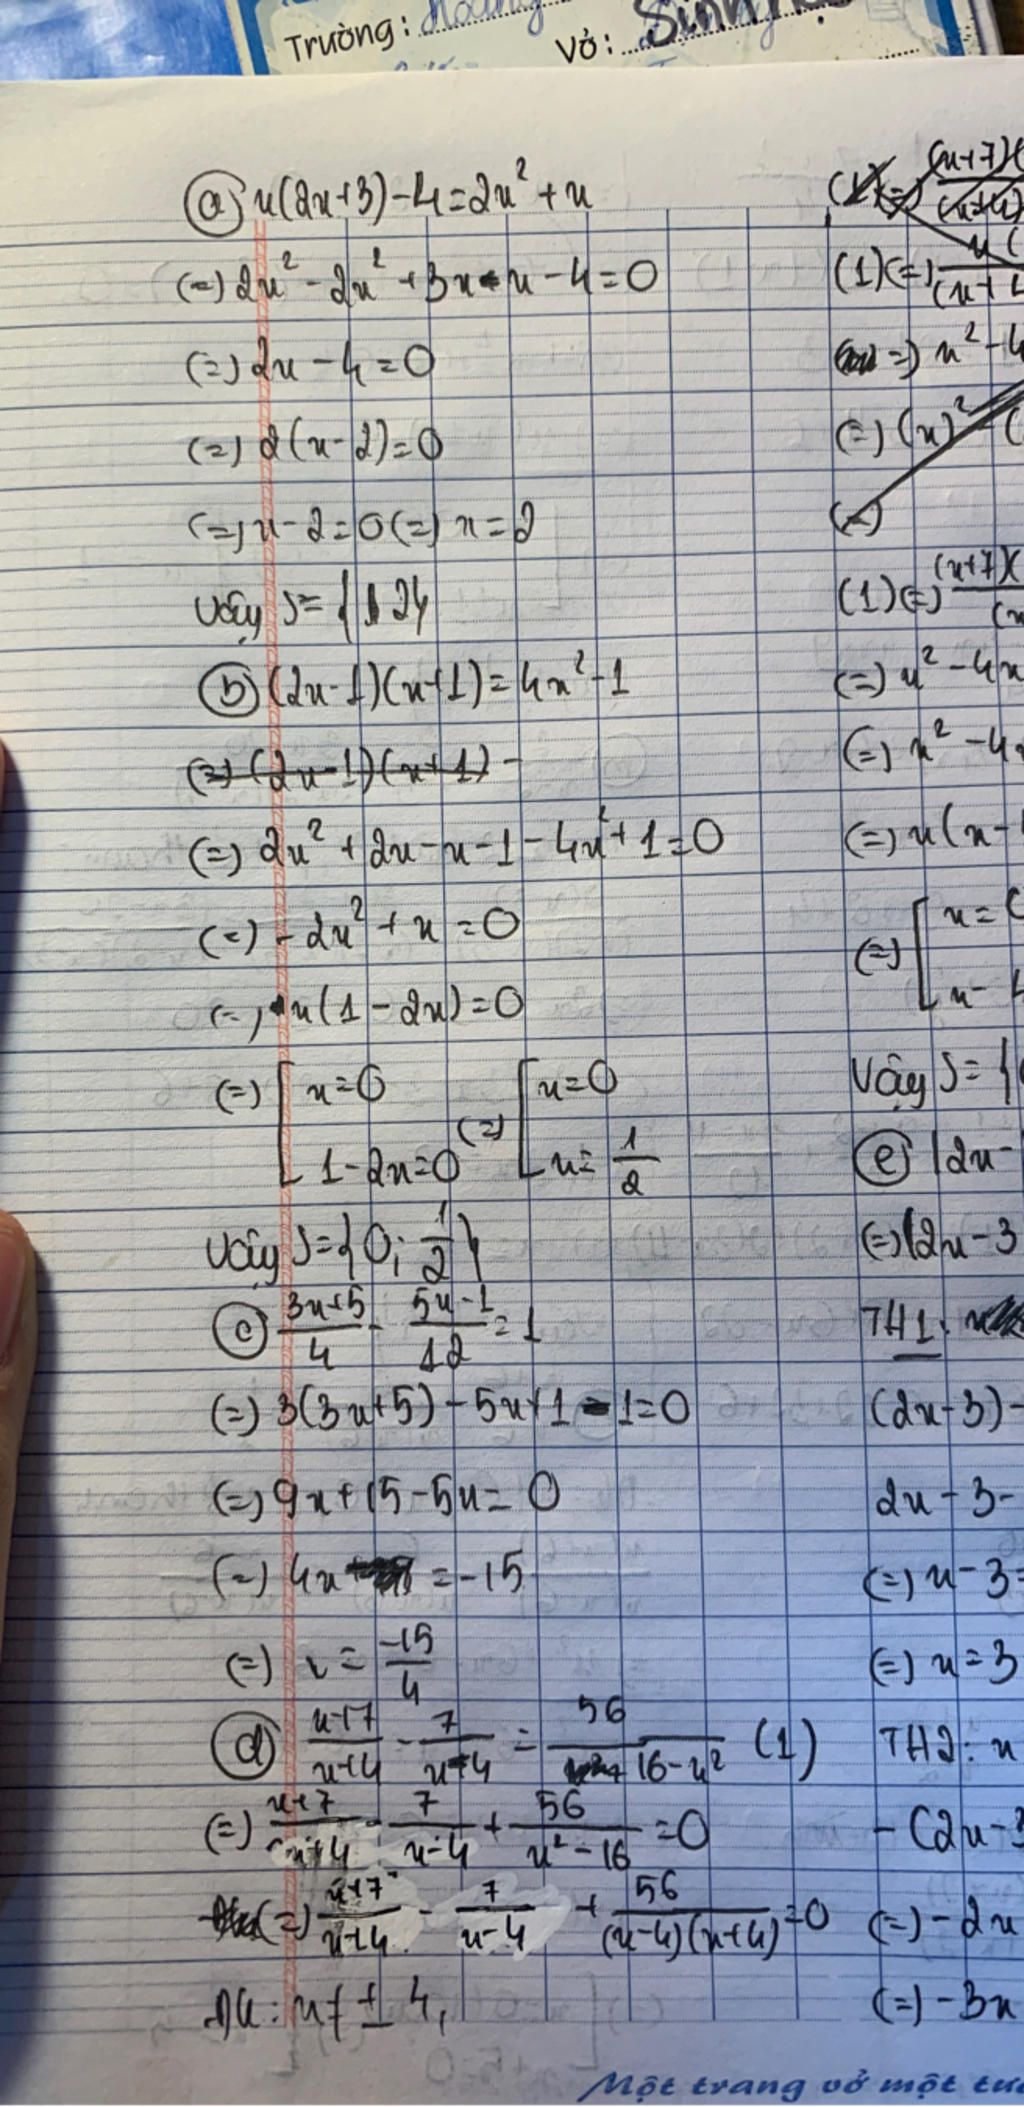 Trường: Hoàng
Vở: Sinh
a) x(2x+3)-4=2x²+x
(=) 2x²-2x²+3x-x-4=0
(=) 2x-4=0
(=) 2(x-2)=0
(=) x-2=0 (=) x=2
Vậy S={2}
b) (2x-1)(x+1)=4x²-1
(=) (2x-1)(x+1)-
(=) 2x²+2x-x-1-4x²+1=0
(=) -2x²+x=0
(=) x(1-2x)=0
(=) [x=0 (=) [x=0
1-2x=0 x=1/2
Vậy S={0; 1/2}
c) (3x+5)/4 - (5x-1)/12 = 1
(=) 3(3x+5)-5x+1-1=0
(=) 9x+15-5x=0
(=) 4x=-15
(=) x=-15/4
d) (x+7)/(x+4) - 7/(x-4) = 56/(16-x²) (1)
(=) (x+7)/(x+4) - 7/(x-4) + 56/(x²-16) =0
(=) (x+7)/(x+4) - 7/(x-4) + 56/((x-4)(x+4)) =0
ĐK: x≠±4,
(1)(=) (x+7)(
(x+4)
(1)(=) x(
(x+4
=) x²-4
(=) (x)²-(
(=)
(1)(=) (x+7)(
(x
(=) x²-4x
(=) x²-4x
(=) x(x-4
(=) [x=0
x-4
Vậy S={0
e) |2x-
(=) |2x-3
TH1:
(2x-3)-
2x-3-
(=) x-3=
(=) x=3
TH2: x
-(2x-3
(=) -2x
(=) -3x
Một trang vở một tư